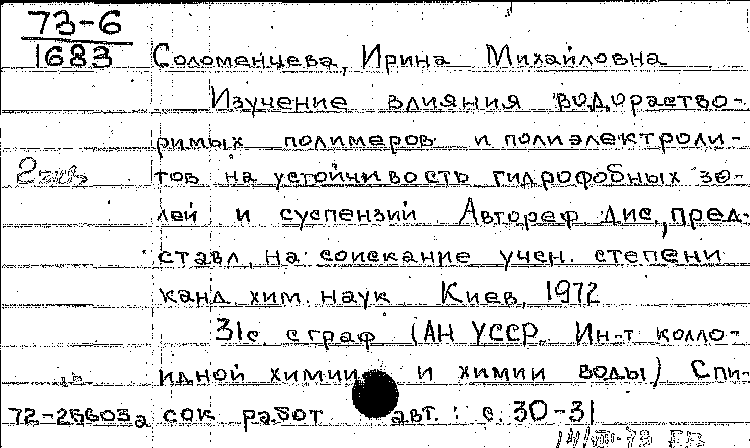 73-6
1683
Соломенцева, Ирина Михайловна
Изучение влияния водораство-
римых полимеров и полиэлектроли-
2 экз
тов на устойчивость гидрофобных зо-
лей и суспензий Автореф дис., пред-
ставл. на соискание учен. степени
канд. хим. наук Киев, 1972
31с. с граф (АН УССР. Ин-т колло-
идной химии и химии воды) Спи-
72-25603а сок работ авт.: с. 30-31